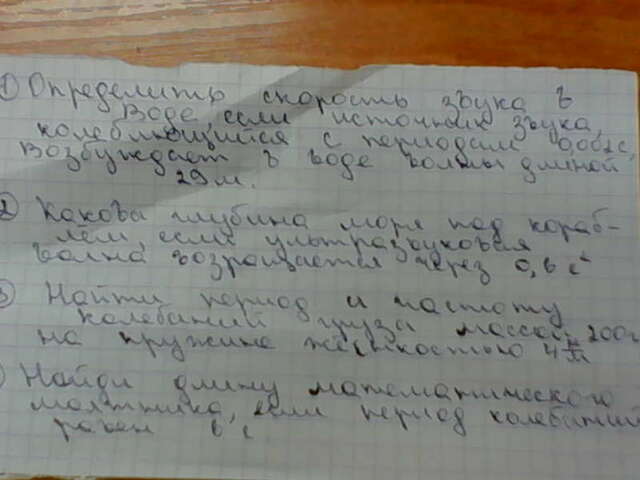 ① Определить скорость звука в
воде если источник звука,
колеблющийся с периодом 0,002с,
возбуждает в воде волны длиной
2,9м.
② Какова глубина моря под кораб-
лём, если ультразвуковая
волна возвращается через 0,6 с
Найти период и частоту
колебаний груза массой 200г
на пружине жёсткостью 4 н/м
Найди длину математического
маятника, если период колебаний
равен 6 с